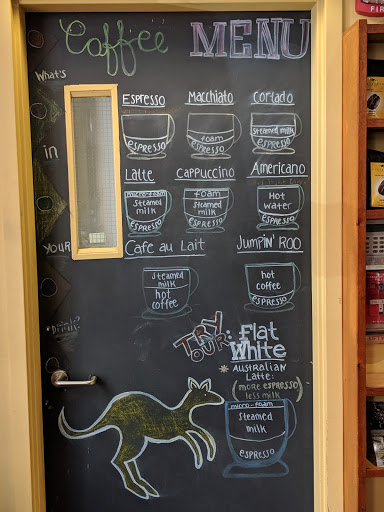 Coffee MENU
What's
in
your
Espresso
espresso
Macchiato
foam
espresso
Cortado
steamed milk
espresso
Latte
micro-foam
steamed
milk
espresso
Cappuccino
foam
steamed
milk
espresso
Americano
Hot
water
espresso
Cafe au Lait
steamed
milk
hot
coffee
Jumpin' Roo
hot
coffee
espresso
TRY
OUR: Flat
White
Australian
Latte:
(more espresso
less milk)
micro-foam
steamed
milk
espresso